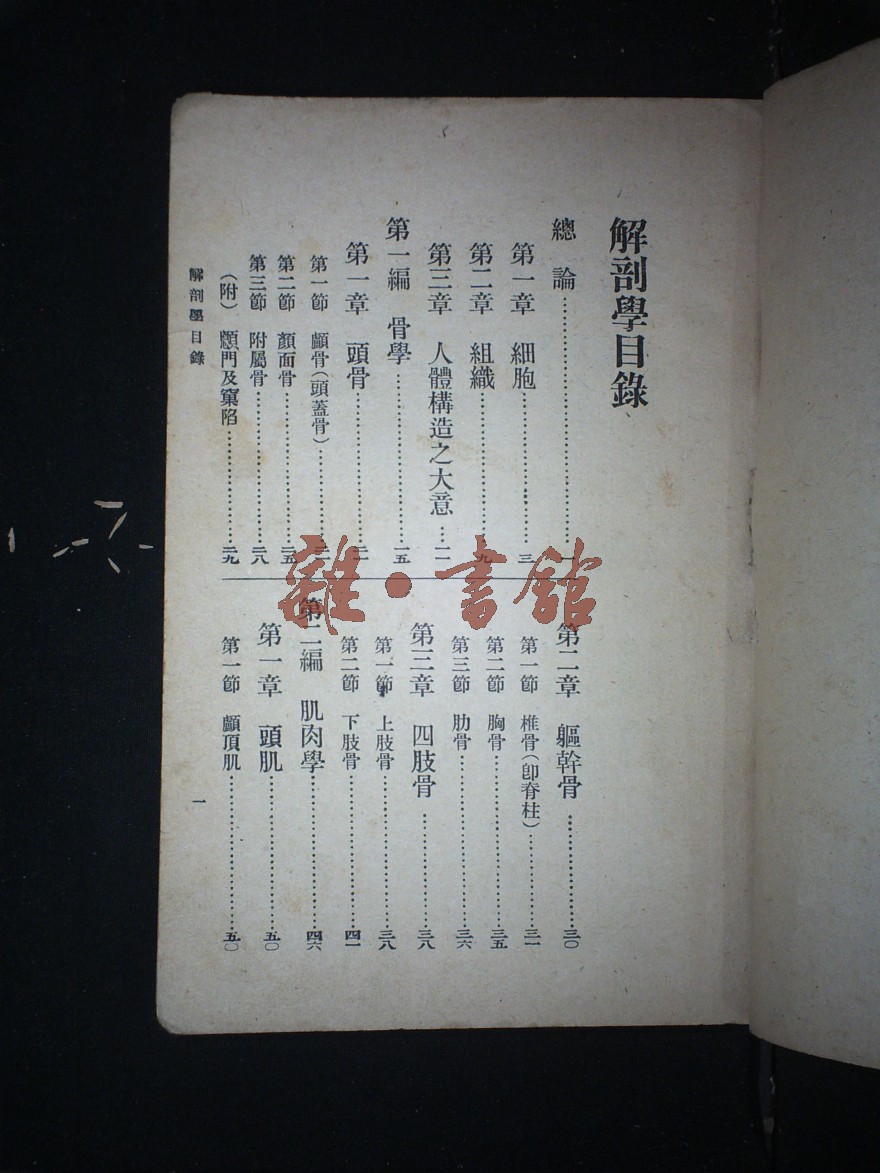 解剖學目錄
總論……一
第一章 細胞……三
第二章 組織……九
第三章 人體構造之大意……一一
第一編 骨學……一五
第一章 頭骨……二一
第一節 顱骨(頭蓋骨)……二一
第二節 顏面骨……二五
第三節 附屬骨……二八
(附) 顖門及窠陷……二九
第二章 軀幹骨……三〇
第一節 椎骨(卽脊柱)……三一
第二節 胸骨……三五
第三節 肋骨……三六
第三章 四肢骨……三八
第一節 上肢骨……三八
第二節 下肢骨……四一
第二編 肌肉學……四六
第一章 頭肌……五〇
第一節 顱頂肌……五〇
解剖學目錄
一
雜·書館